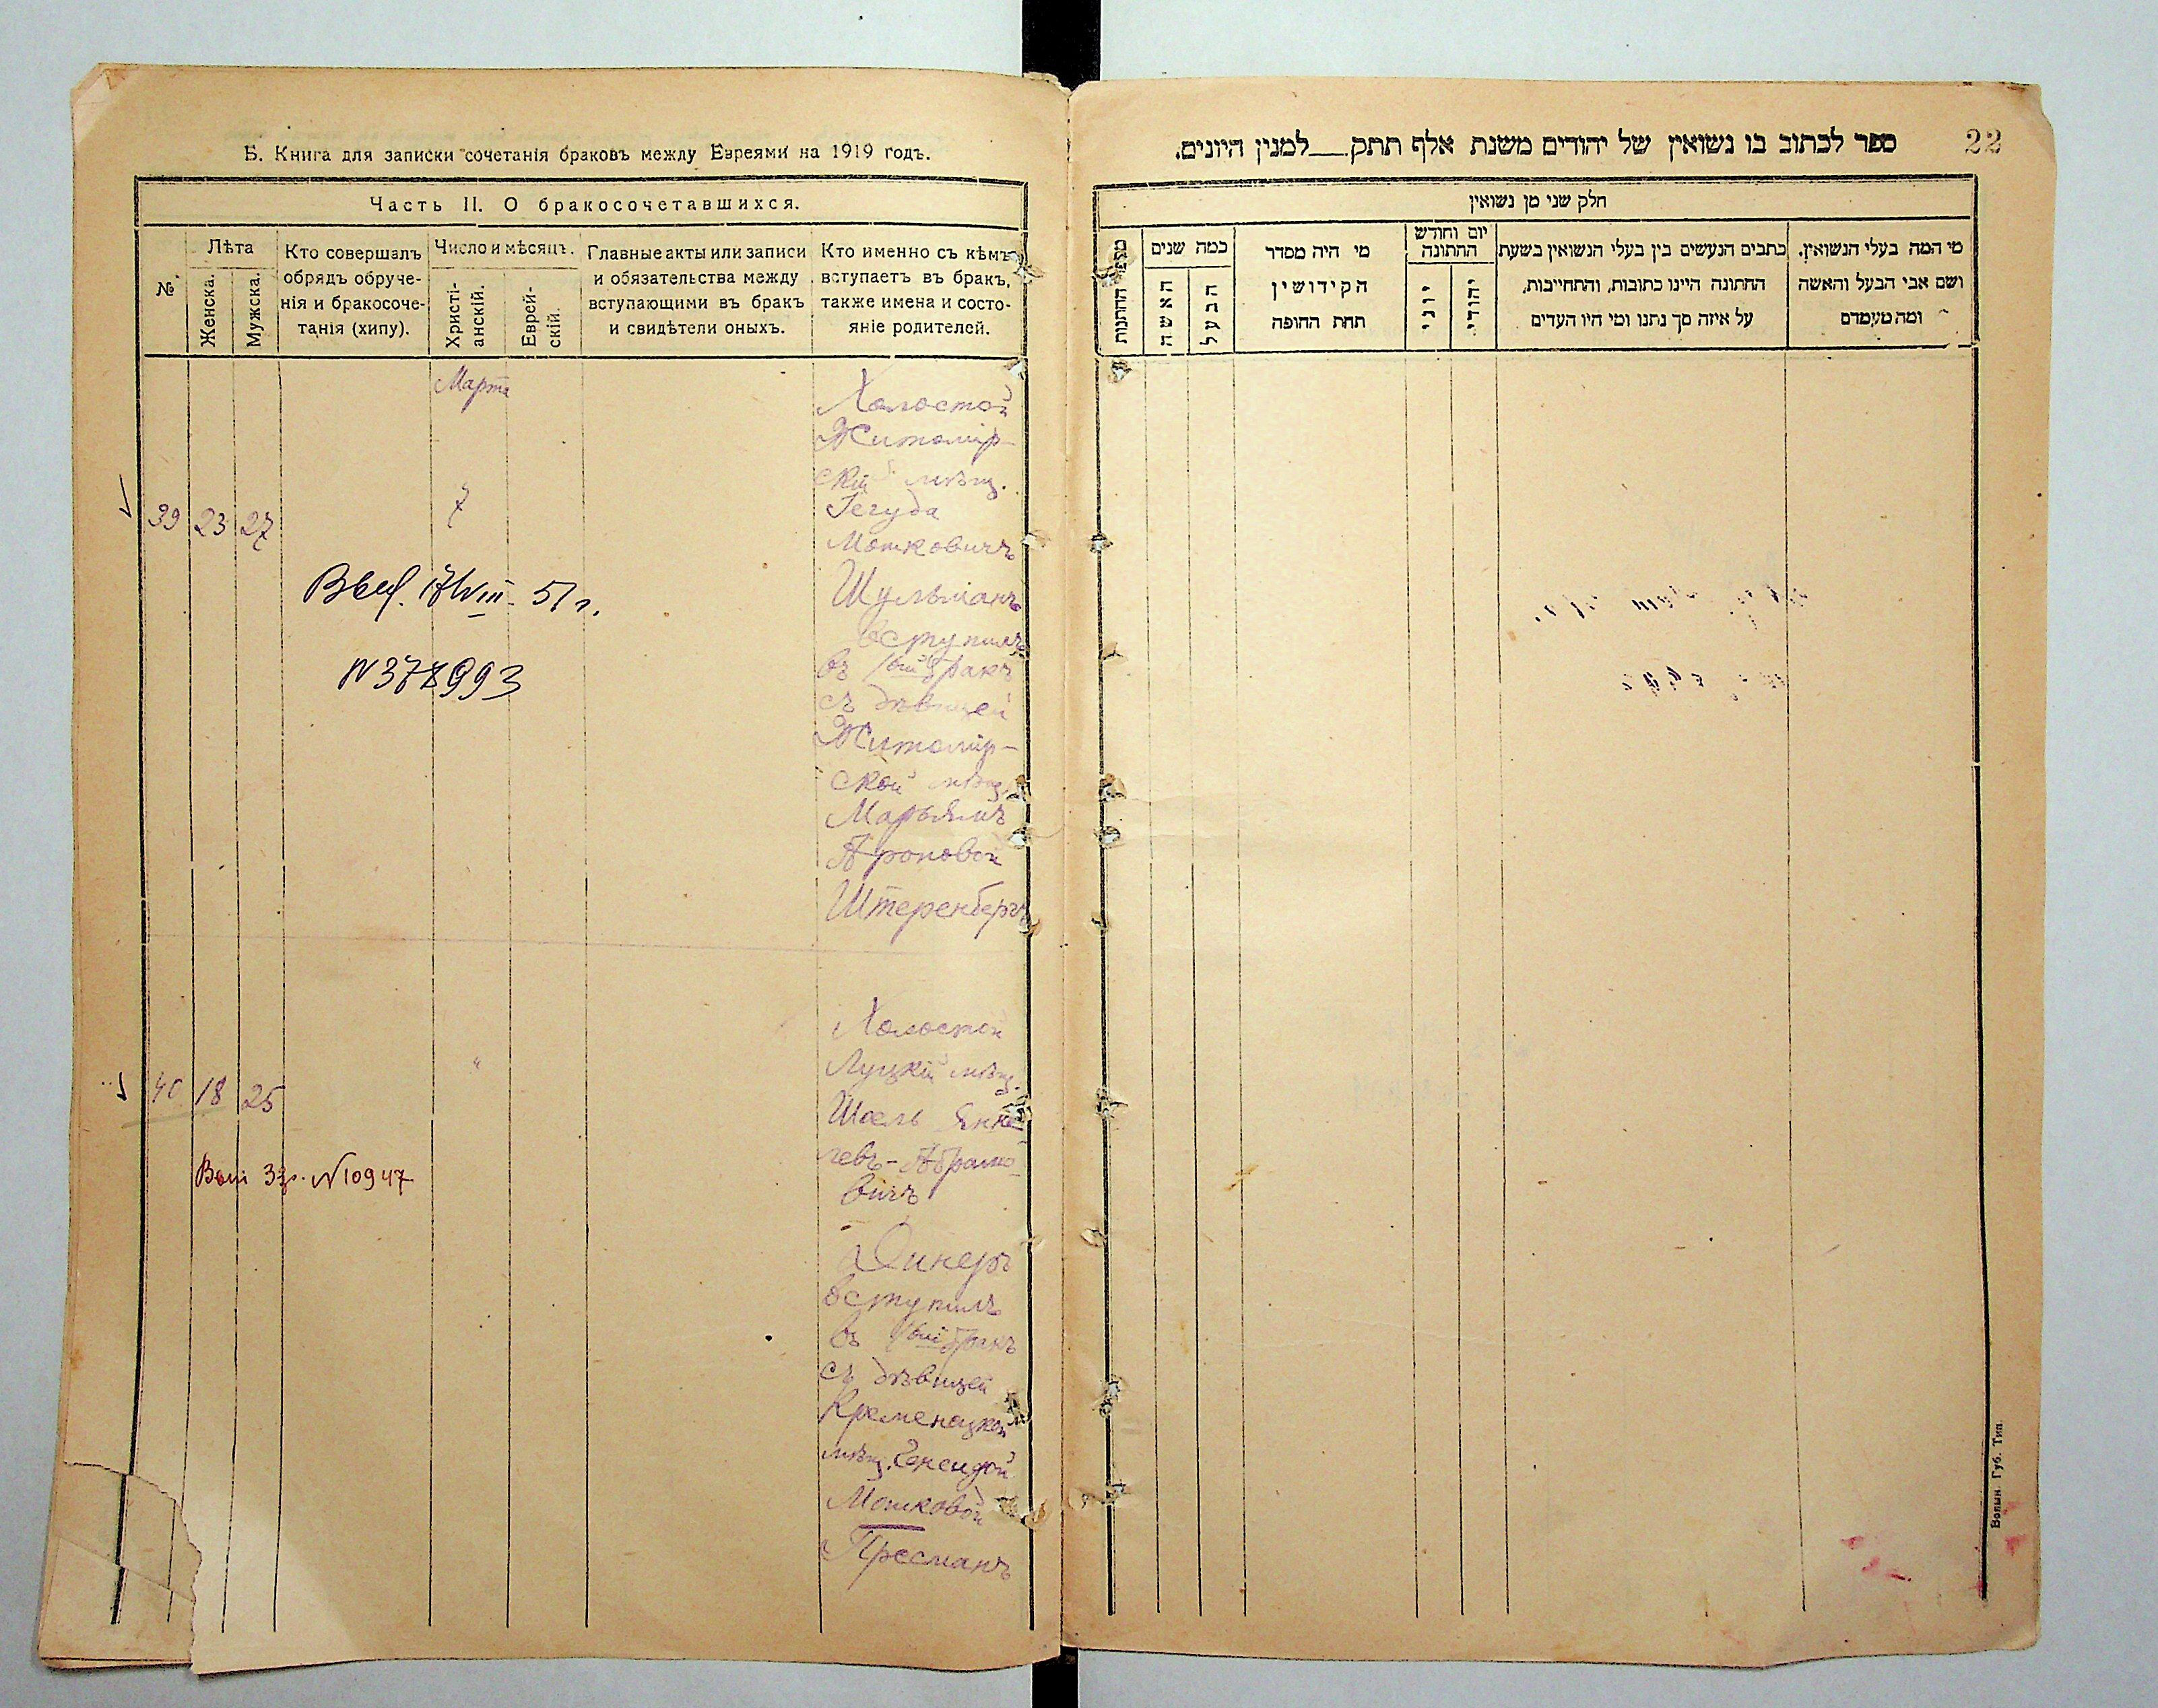 Б. Книга для записки сочетанія браковъ между Евреями на 1919 годъ.
Часть II. О бракосочетавшихся.
№.
Лѣта
Женска.
Мужска.
Кто совершалъ
обрядъ обруче-
нія и бракосоче-
танія (хипу).
Число и мѣсяцъ.
Христі-
анскій.
Еврей-
скій.
Главные акты или записи
и обязательства между
вступающими въ бракъ
и свидѣтели оныхъ.
Кто именно съ кѣмъ
вступаетъ въ бракъ,
также имена и состо-
яніе родителей.
Марта
39 23 27
7
Холостой
Житомір-
скій мѣщ.
Іегуда
Мошковичъ
Шульманъ
вступилъ
въ 1вый бракъ
съ дѣвицей
Житомір-
ской мѣщ.
Марьямъ
Ароновой
Штеренбергъ
Выд. 17/VIII - 51 г.
N 378993
40 18 25
"
Холостой
Луцкій мѣщ.
Шаель Янке
левъ-Абрамо
вичъ
Динеръ
вступилъ
въ 1вый бракъ
съ дѣвицей
Кременецкой
мѣщ.
Мошковой
Пресманъ
N 10947
22
ספר לכתוב בו נשואין של יהודים משנת אלף תתק__למנין היונים.
חלק שני מן נשואין
מספר החתנות
כמה שנים
האשה
הבעל
מי היה מסדר
הקידושין
תחת החופה
יום וחודש
החתונה
יוני
יהודי
כתבים הנעשים בין בעלי הנשואין בשעת
החתונה היינו כתובות, והתחייבות,
על איזה סך נתנו ומי היו העדים
מי המה בעלי הנשואין.
ושם אבי הבעל והאשה
ומה מעמדם
Волын. Губ. Тип.